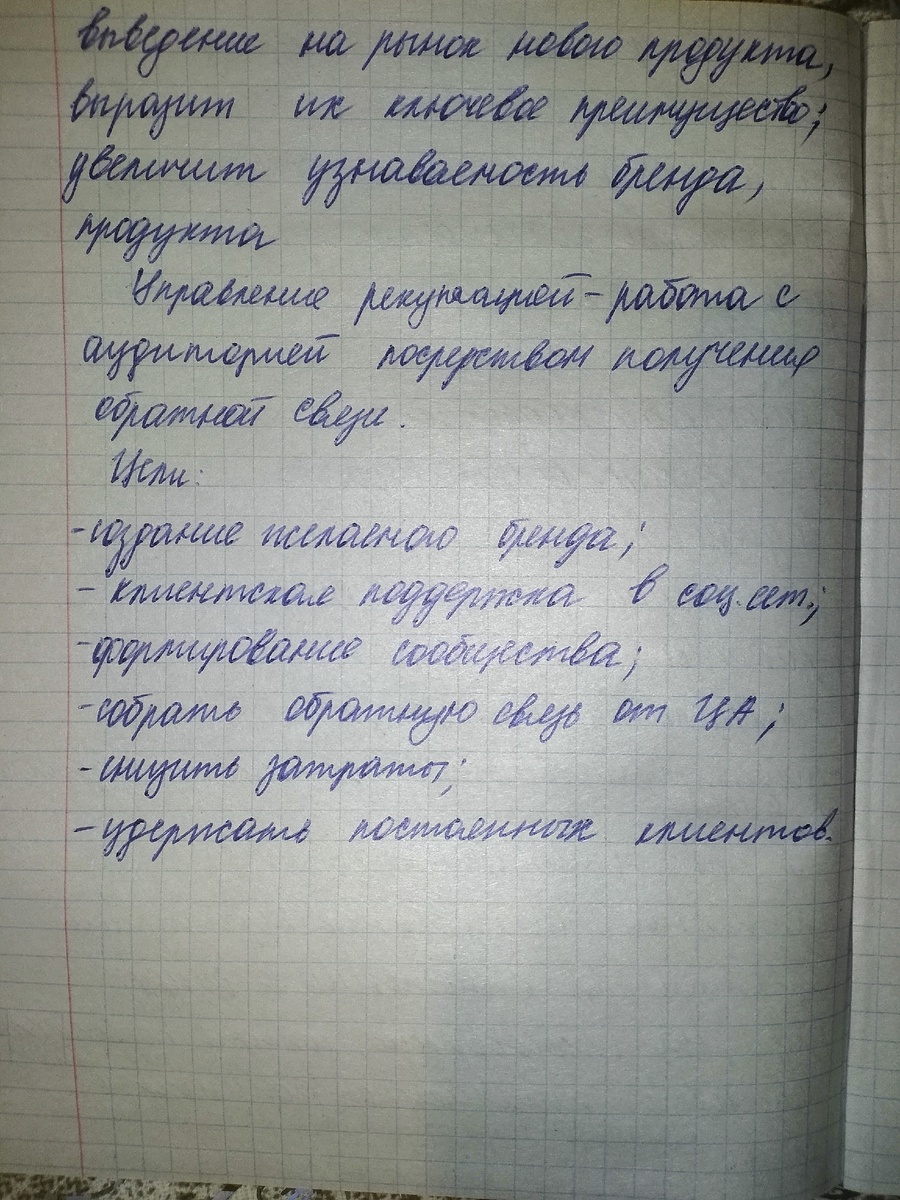 выведение на рынок нового продукта,
выразит их ключевое преимущество;
увеличит узнаваемость бренда,
продукта
Управление рекутацией - работа с
аудиторией посредством получения
обратной связи.
Цели:
- создание желаемого бренда;
- клиентская поддержка в соц. сет.;
- формирование сообщества;
- собрать обратную связь от ЦА;
- снизить затраты;
- удержать постоянных клиентов.